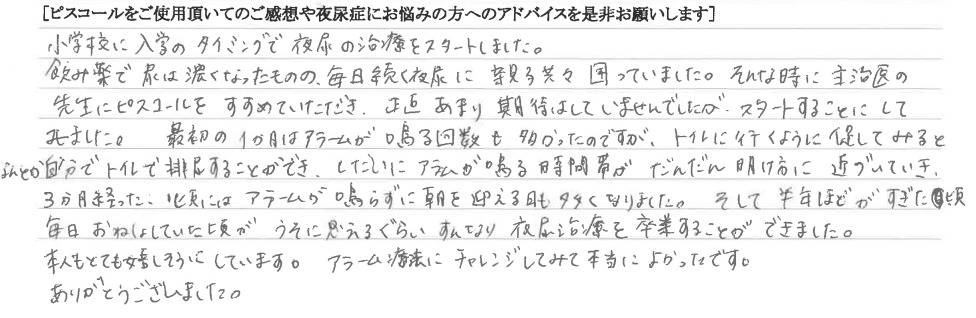 [ピスコールをご使用頂いてのご感想や夜尿症にお悩みの方へのアドバイスを是非お願いします]
小学校に入学のタイミングで夜尿の治療をスタートしました。
飲み薬で尿は濃くなったものの、毎日続く夜尿に親子共々困っていました。そんな時に主治医の
先生にピスコールをすすめていただき、正直あまり期待はしていませんでしたが、スタートすることにして
みました。最初の1か月はアラームが鳴る回数も多かったのですが、トイレに行くように促してみると
なんとか自分でトイレで排尿することができ、しだいにアラームが鳴る時間帯がだんだん明け方に近づいていき、
3か月経った頃にはアラームが鳴らずに朝を迎える日も多くなりました。そして半年ほどがすぎた頃
毎日おねしょしていた頃がうそに思えるぐらいすんなり夜尿治療を卒業することができました。
本人もとても嬉しそうにしています。アラーム療法にチャレンジしてみて本当によかったです。
ありがとうございました。